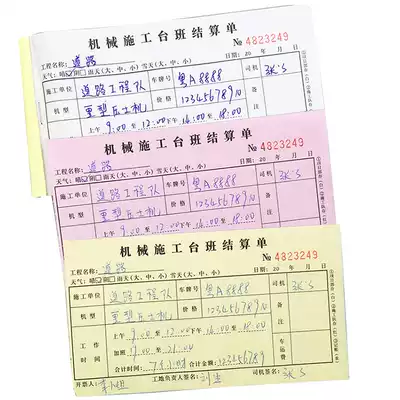 机械施工台班结算单
№ 4823249
工程名称: 道路
日期: 20 年 月 日
天气: 晴 阴 雨天(大、中、小) 雪天(大、中、小)
施工单位 道路工程队 车牌号 黑A8888 司机 张S
机型 重型压土机 价格 123456789N 备注
上午 9:00 至 12:00 下午 14:00 至 18:00
机械施工台班结算单
№ 4823249
工程名称: 道路
日期: 20 年 月 日
天气: 晴 阴 雨天(大、中、小) 雪天(大、中、小)
施工单位 道路工程队 车牌号 黑A8888 司机 张S
机型 重型压土机 价格 123456789N 备注
上午 9:00 至 12:00 下午 14:00 至 18:00
机械施工台班结算单
№ 4823249
工程名称: 道路
日期: 20 年 月 日
天气: 晴 阴 雨天(大、中、小) 雪天(大、中、小)
施工单位 道路工程队 车牌号 黑A8888 司机 张S
机型 重型压土机 价格 123456789N 备注
工作时间 上午 9:00 至 12:00 下午 14:00 至 18:00 车运费
加班 9:00 至 21:00
合计时间: 合计金额: 123456789
开票人: 工地负责人签名: 司机签名: 张S